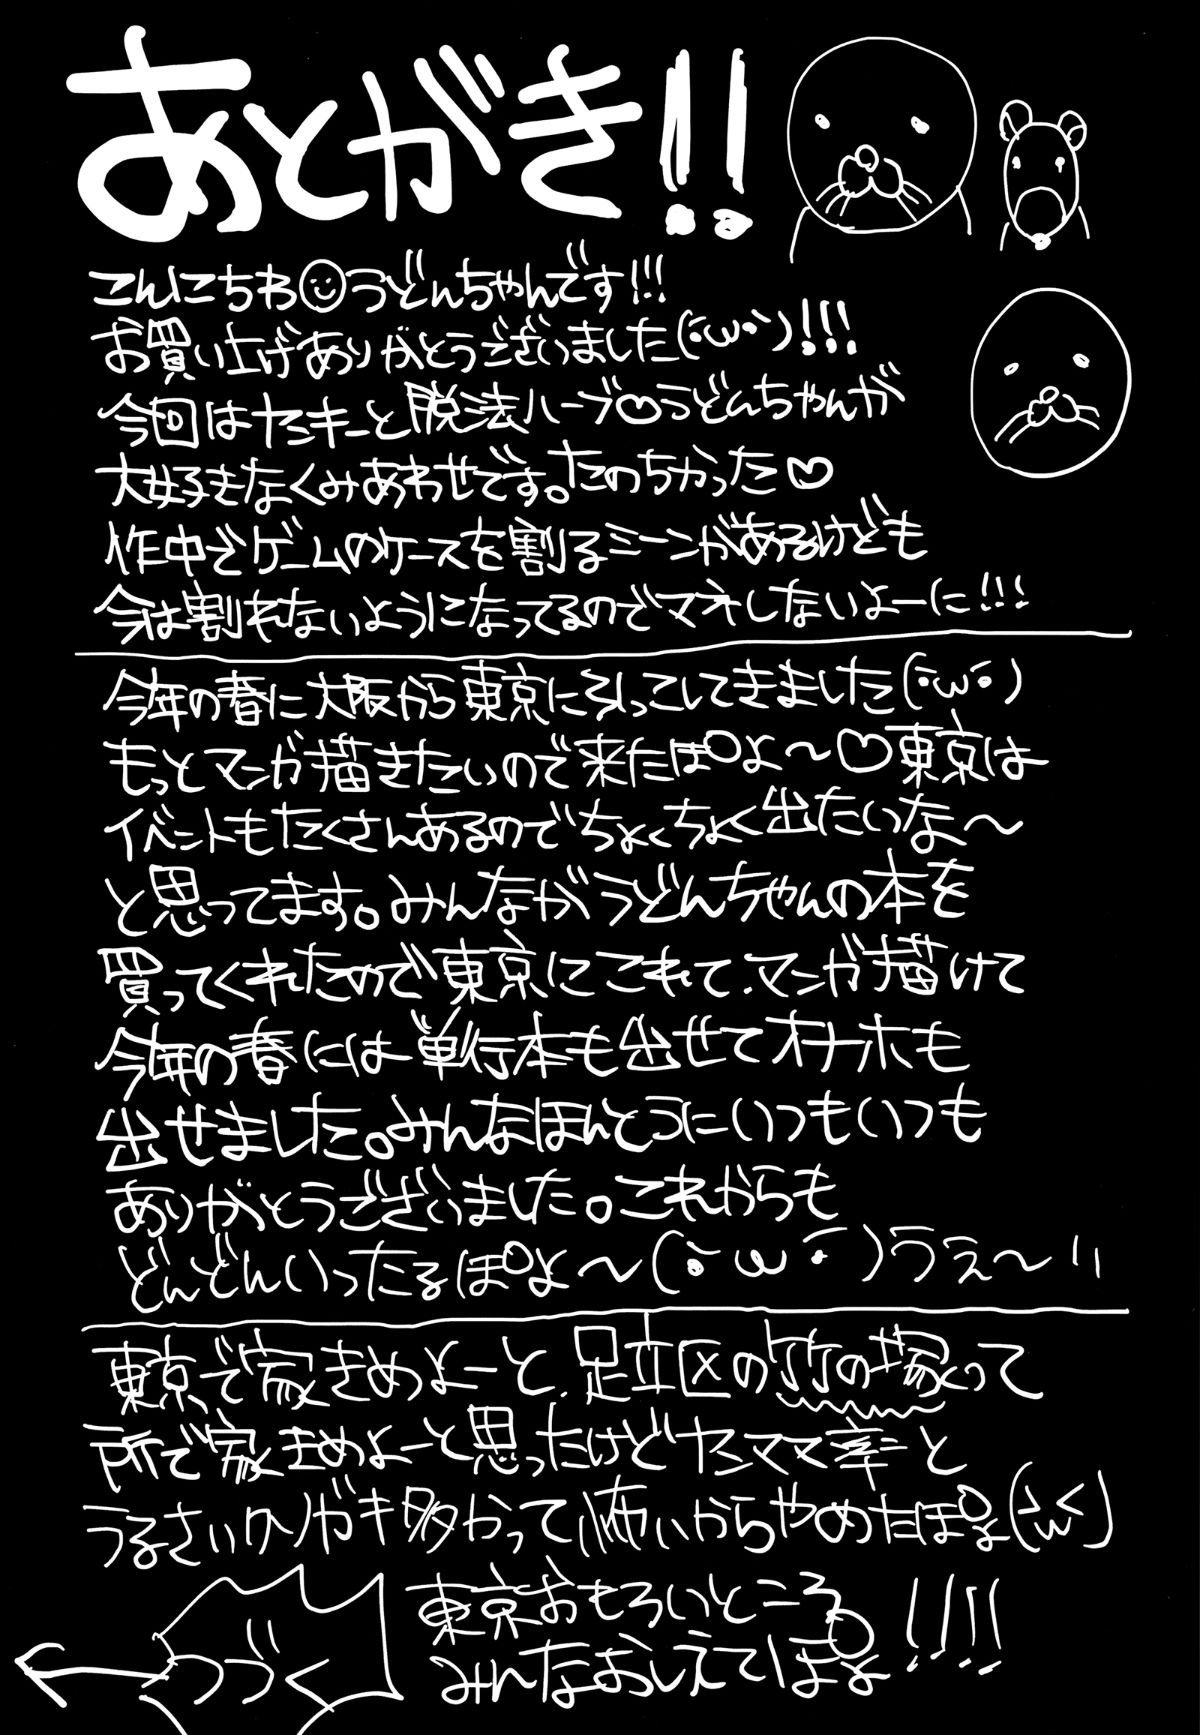 あとがき!!
こんにちわ☺うどんちゃんです!!!
お買い上げありがとうございました(･ω･`)!!!
今回はヤミキーと脱法ハーブ♡うどんちゃんが
大好きなくみあわせです。たのちかった♡
作中でゲームのケースを割るシーンがあるけども
今は割れないようになってるのでマネしないよーに!!!
今年の春に大阪から東京に引っこしてきました(･ω･)
もっとマンガ描きたいので来たぽよ〜♡東京は
イベントもたくさんあるのでちょくちょく出たいな〜
と思ってます。みんながうどんちゃんの本を
買ってくれたので東京にこれて、マンガ描けて
今年の春には単行本も出せてオナホも
出せました。みんなほんとうにいつもいつも
ありがとうございました。これからも
どんどんいったるぽよ〜(･ω･)うぇ〜!!
東京で家きめよーと、足立区の竹の塚って
所で家きめよーと思ったけどヤンママ率と
うるさいクソガキ多かって怖いからやめたぽよ
東京おもろいところ
みんなおしえてぽよ!!!!
つづく